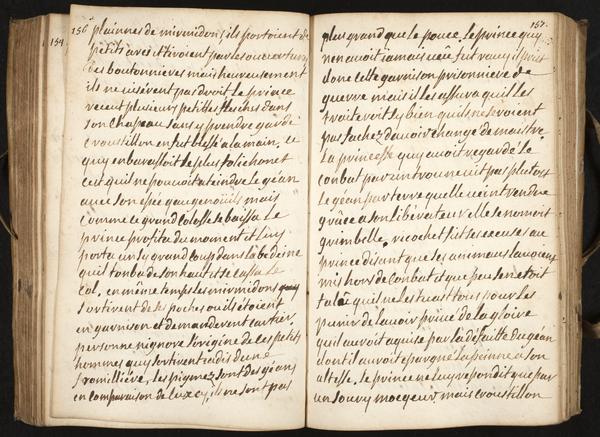 154
156
plainnes de mirmidons; ils portoient de
petits arcs et tiroient par les ouvertures
des boutonnieres mais heureusement
ils ne visérent pas droit le prince
receut plusieurs petittes flesches dans
son chapeau sans y prendre garde
croustillon en fut blessé a la main, ce
quy embarassoit le plus folichonet
cest quil ne pouvoit ateindre le géan
avec son espée quau genoüils mais
comme ce grand colosse se baissa le
prince profita du moment et luy
porta un sy grand coup dans la bedeine
quil tomba de son haut et se cassa le
col, en méme temps les mirmidons
sortirent de ses poches ou ils étoient
en garnison et demanderent cartier,
personne nignore lorigine de ces petits
hommes quy sortirent jadis dune
fromilliére, les pigmez sont des géans
en comparaison de luxcy, ils ne sont pas
157.
plus grand que le pouce. le prince quy
nen avoit iamais veüe fut ravy il prist
donc cette garnison prisonniere de
guerre mais il les assura quil les
traiteroit sy bien quils ne seroient
pas fachez davoir changé de maistre
la princesse quy avoit regardé le
conbat par un trou ne vit pas plutost
le géan par terre quelle vient rendre
grâce a son libérateur elle se nomoit
grimbelle. ricochet fit ses excuses au
prince disant que les animeaux lavoient
mis hors de conbat et que peu sen étoit
falû quil ne les tuast tous pour les
punir de lavoir privé de la gloire
quil auroit aquise par la défaitte du géan
dont il auroit épargné la peinne a son
altesse, le prince ne luy repondit que par
un soury mocqeur. mais croustillon